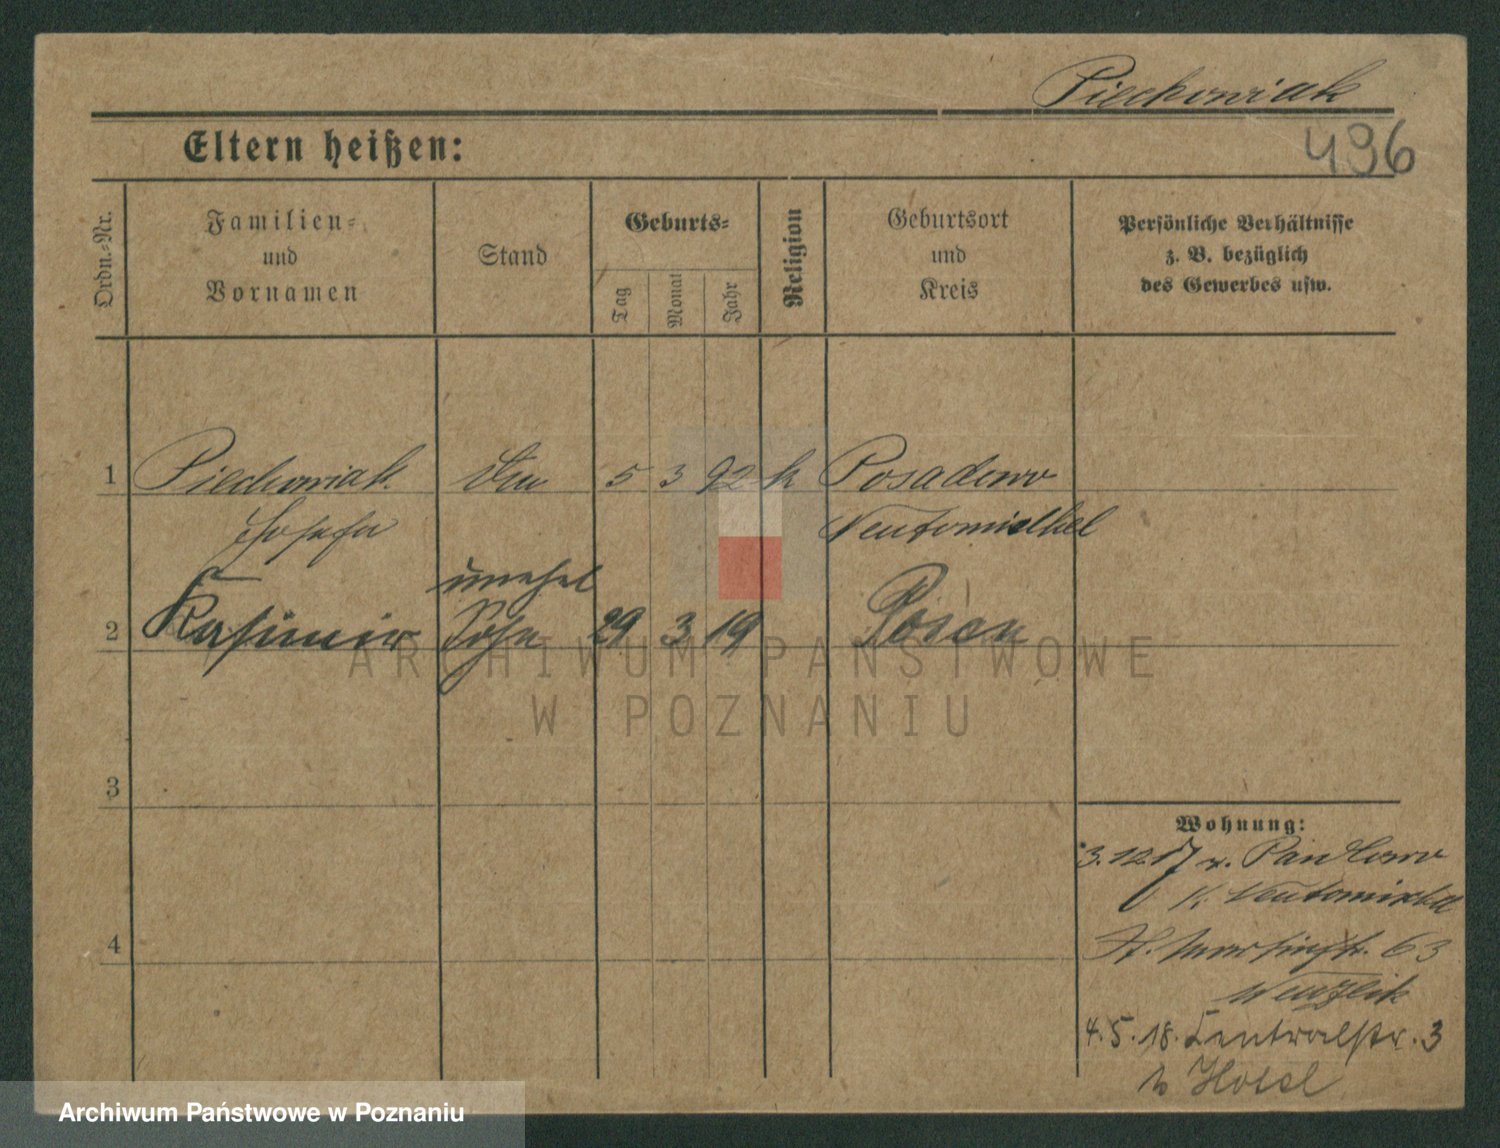 Piechowiak
Eltern heißen:
496
Ordn.-Nr.
Familien-
und
Vornamen
Stand
Geburts-
Tag
Monat
Jahr
Religion
Geburtsort
und
Kreis
Persönliche Verhältnisse
z. B. bezüglich
des Gewerbes usw.
1 Piechowiak 5 3 92 k Posadowo
Josefa Neutomischel
unehel
2 Kasimir Sohn 29 3 19 Posen
ARCHIWUM PAŃSTWOWE
W POZNANIU
3
Wohnung:
3.12.17 v.
K. Neutomischel
4
St. Martinstr. 63
4.5.18. Centralstr. 3
b Hotel
Archiwum Państwowe w Poznaniu